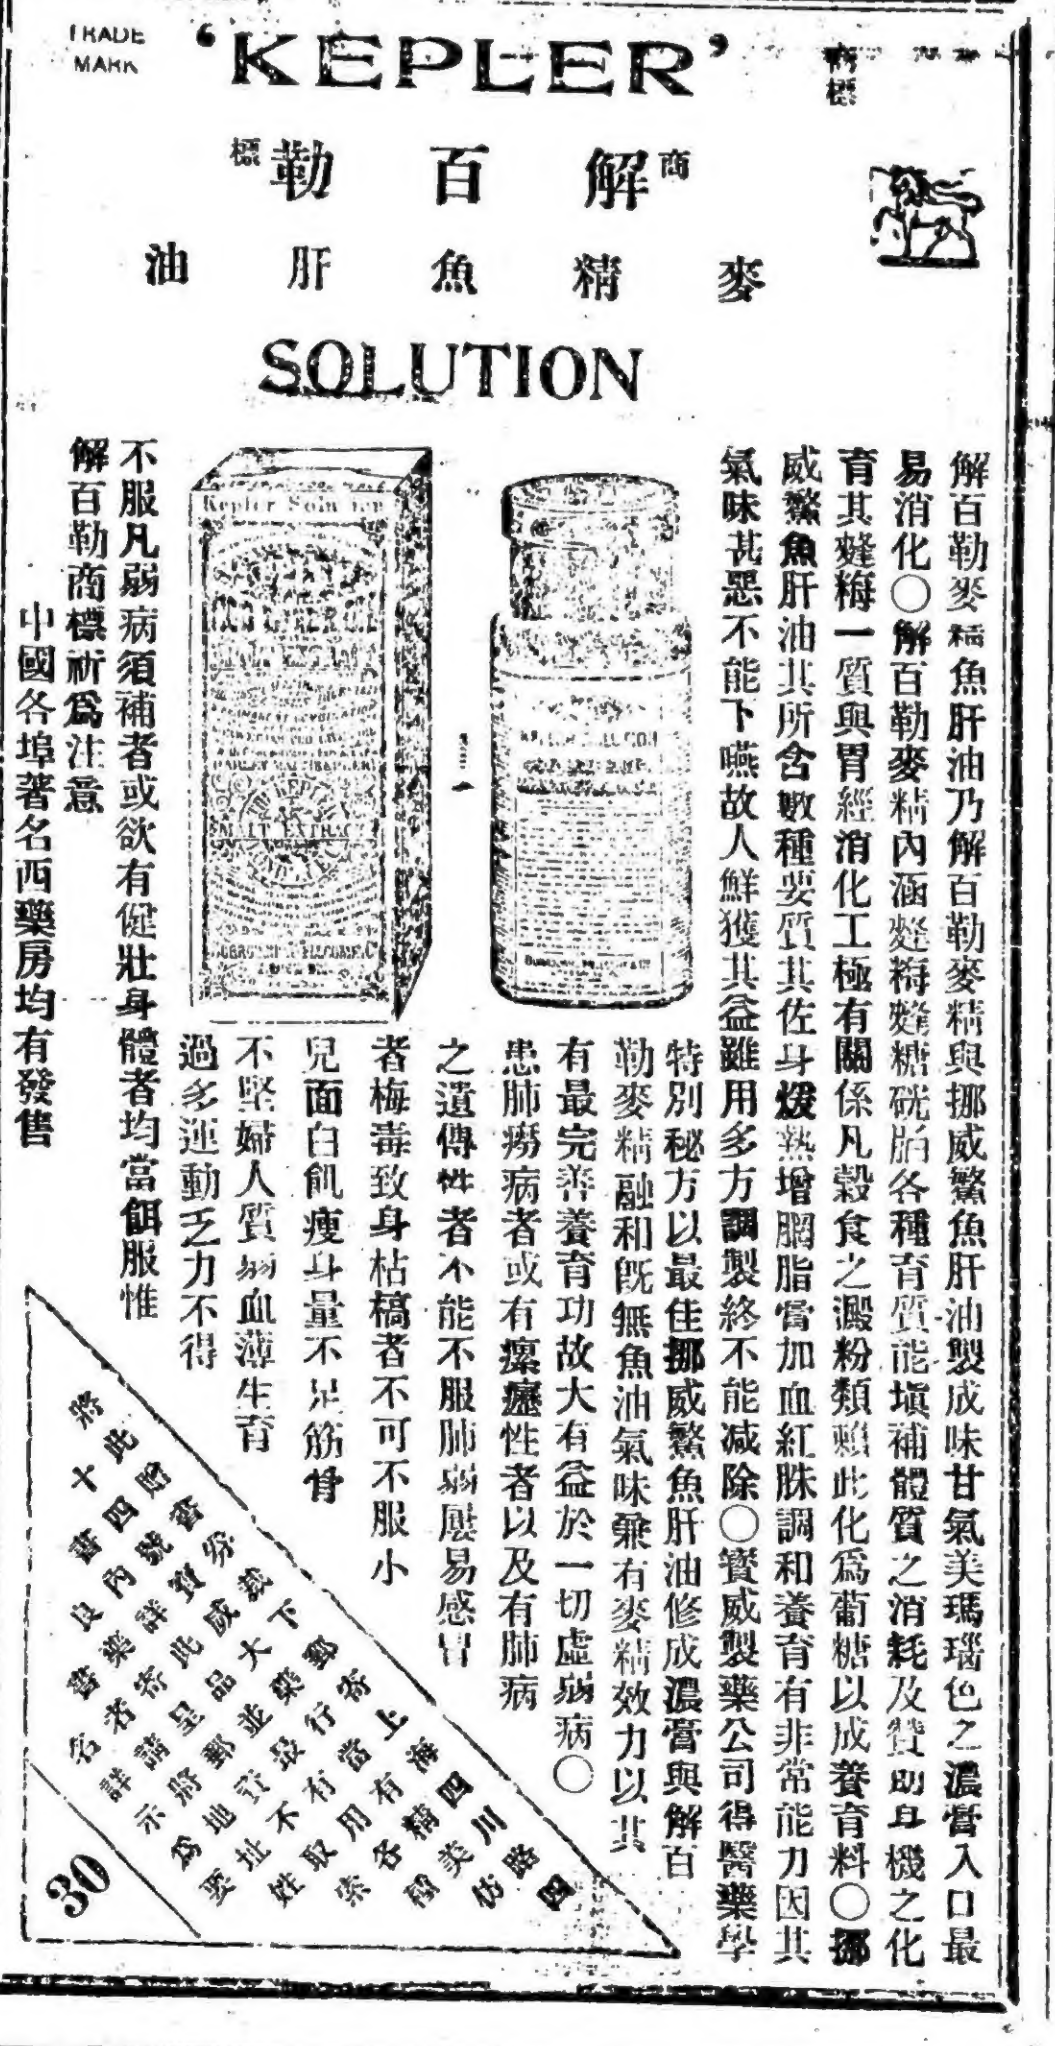 TRADE MARK
'KEPLER'
商標
商標 解百勒
麥精魚肝油
SOLUTION
解百勒麥精魚肝油乃解百勒麥精與挪威鱉魚肝油製成味甘氣美瑪瑙色之濃膏入口最
易消化○解百勒麥精內涵 糖硄脂各種育質能塡補體質之消耗及贊助身機之化
育其 一質與胃經消化工極有關係凡穀食之澱粉類賴此化爲葡糖以成養育料○挪
威鱉魚肝油其所含數種要質其佐身煖熱增胭脂嘗加血紅胅調和養育有非常能力因其
氣味甚惡不能下嚥故人鮮獲其益雖用多方調製終不能減除○寳威製藥公司得醫藥學
特別秘方以最佳挪威鱉魚肝油修成濃膏與解百
勒麥精融和旣無魚油氣味兼有麥精效力以其
有最完善養育功故大有益於一切虛弱病○
患肺癆病者或有瘰癧性者以及有肺病
之遺傳性者不能不服肺弱屢易感冒
者梅毒致身枯槁者不可不服小
兒面白飢瘦身量不足筋骨
不堅婦人質弱血薄生育
過多運動乏力不得
不服凡弱病須補者或欲有健壯身體者均當餌服惟
解百勒商標祈爲注意
中國各埠著名西藥房均有發售
Kepler Solution
MALT EXTRACT
將此賠資券裁下郵寄上海四川路四
十四號寳威大藥行當有精美仿
書內詳此品並最有用各種
良藥寄呈郵資不取索
書者請將地址姓
名詳示爲要
30